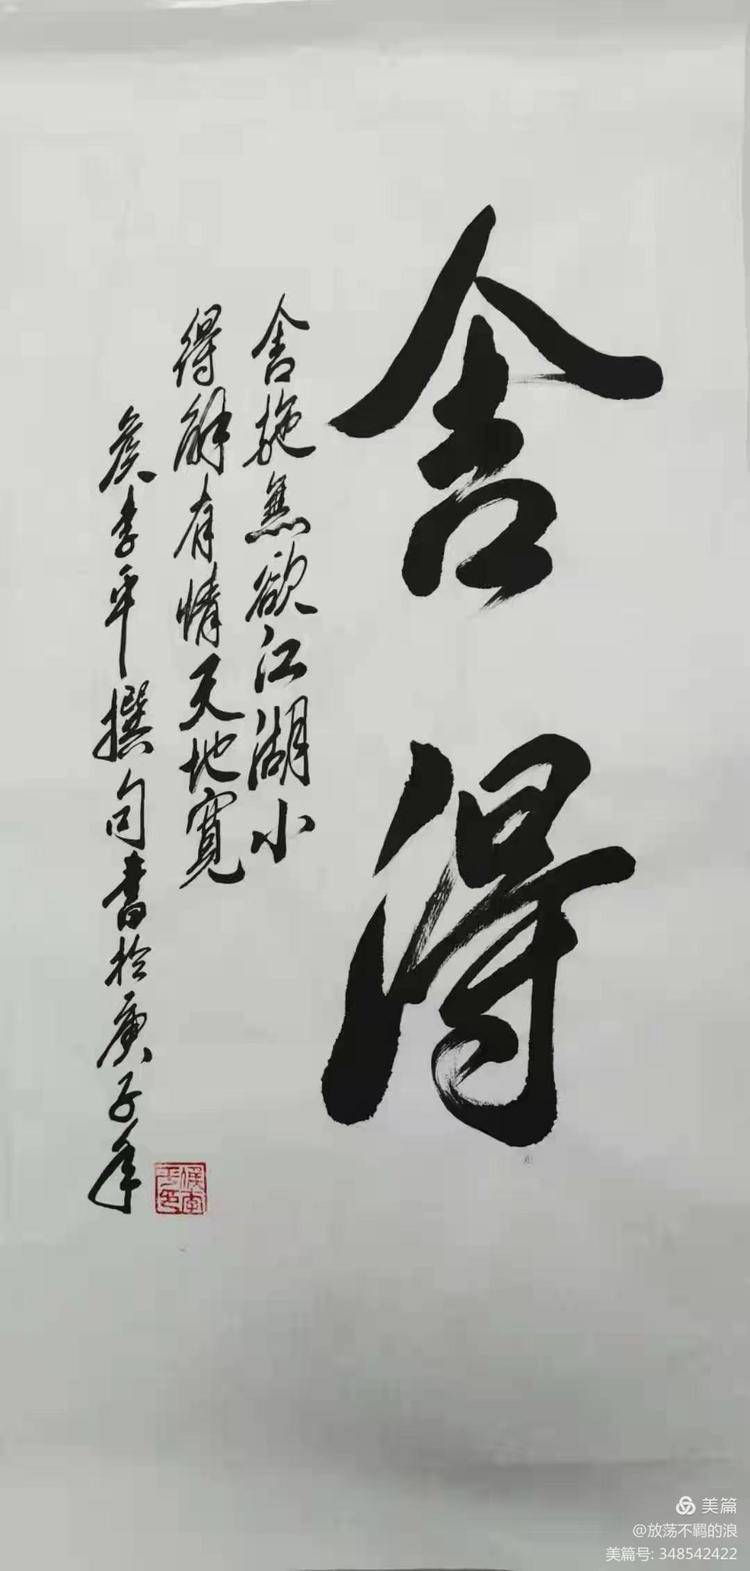 舍得
舍施無欲江湖小
得解有情天地寬
侯李平撰句書於庚子年
美篇
@放荡不羁的浪
美篇号: 348542422